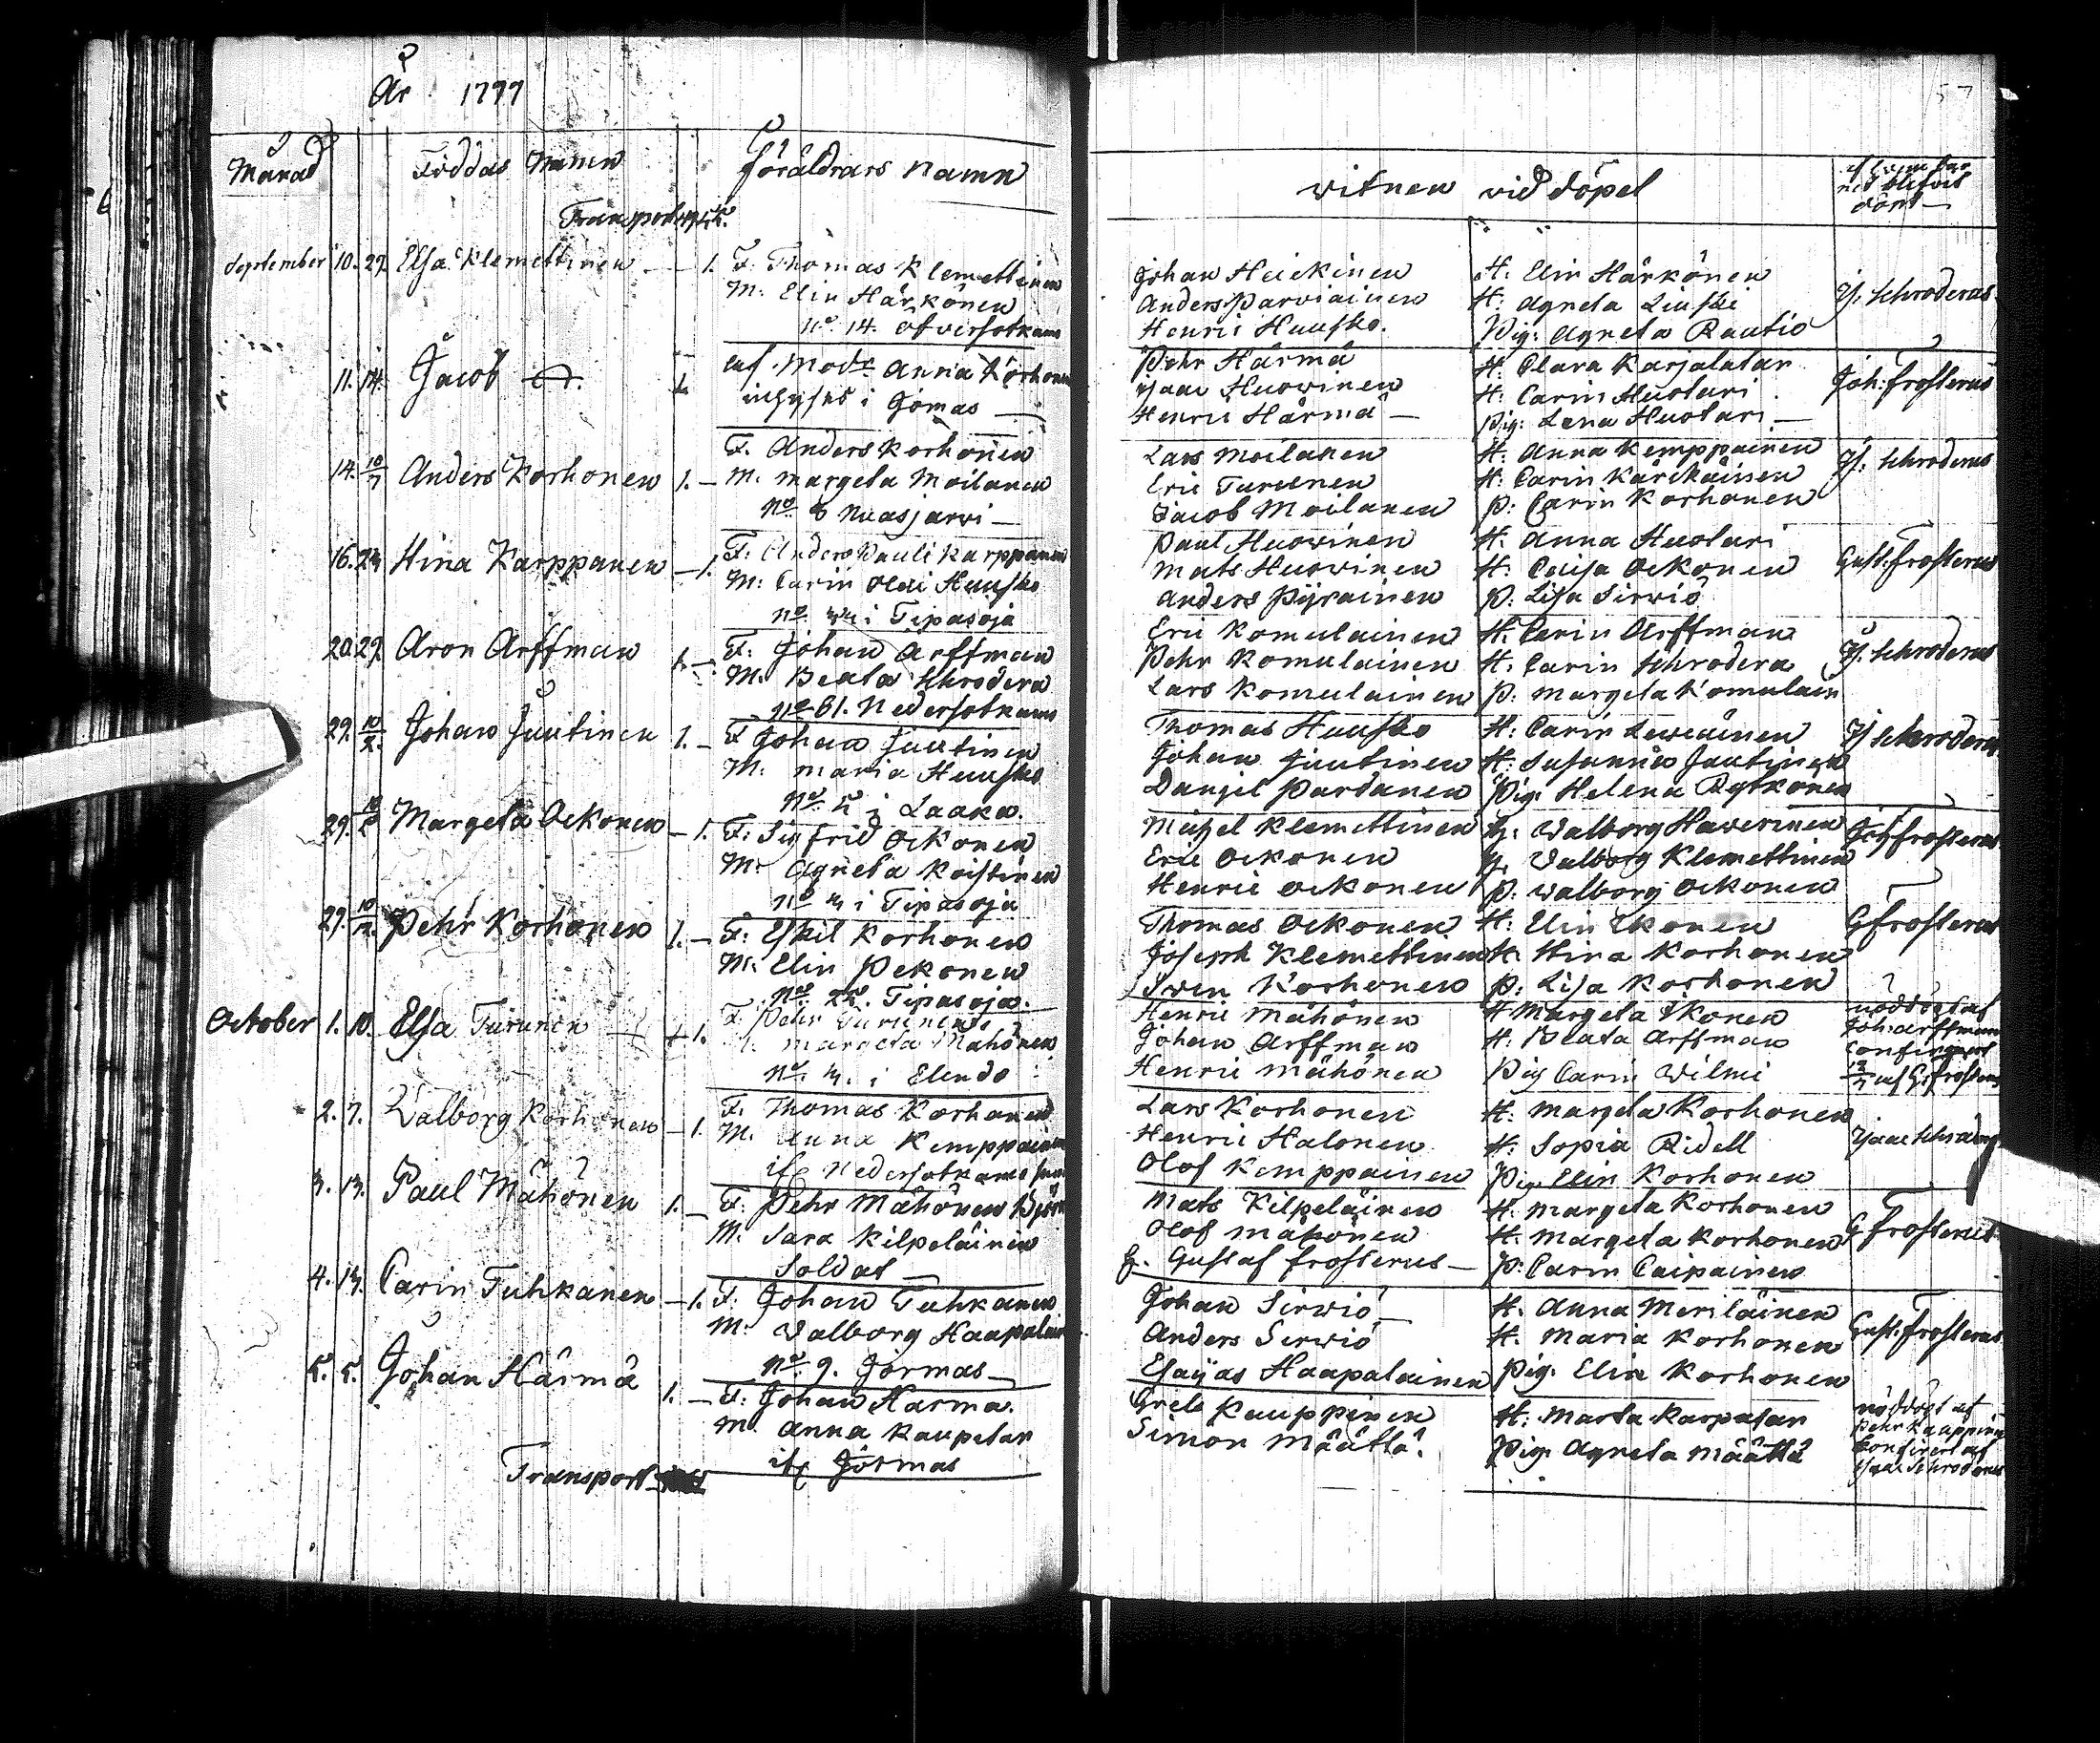 År 1797
57
Månad
Föddas Namn
föräldrars Namn
witnen vid döpel
af hwem bar
net blifvit
döpt
Transport
September 10. 27. Elsa Klemettinen 1. F: Thomas Klemettinen
M: Elin Härkönen
No 14. Öfversotkamo
Johan Heickinen H: Elin Härkönen
Anders Parviainen H: Agneta Liuski
Henric Huusko. Pig: Agneta Rautio
Schroderus
11. 14. Jacob
af Modr Anna Korhonen
inhyses i Jormas
Pehr Härmä H. Clara Karjalatar
Isaac Huovinen H: Carin Huotari
Henric Härmä Pig: Lena Huotari
Joh: Frosterus
14. 10/7 Anders Korhonen 1. F. Anders Korhonen
M. Margeta Moilanen
No 8 Nuasjärvi
Lars Moilanen H: Anna Kemppainen
Eric Turunen H: Carin Kärckäinen
Jacob Moilanen P: Carin Korhonen
Schroderus
16. Hina Karppanen 1. F: Anders Pauli Karppanen
M: Carin Olai Huusko
i Tipasoja
Paul Huovinen H: Anna Huotari
Mats Huovinen H: Caisa Ockonen
Anders Pyrainen P: Lisa Sirviö
Gust: Frosterus
20. 29. Aron Arffman 1. F: Johan Arffman
M. Beata Schrodera
No 61. Nedersotkamo
Eric Komulainen H: Carin Arffman
Pehr Komulainen H: Carin Schrodera
Lars Komulainen P: Margeta Komulain
Schroderus
29. 10/2. Johan Juutinen 1. F Johan Juutinen
M: Maria Huusko
No 5 i Laaka.
Thomas Huusko H: Carin Leweäinen
Johan Juutinen H: Susanna Juutinen
Daniel Pardanen Pig: Helena Rytkönen
Schroderus
29. Margeta Ockonen 1. F: Sigfrid Ockonen
M: Agneta Koistinen
i Tipasoja
Michel Klemettinen H: Walborg Haverinen
Eric Ockonen H. Valborg Klemettinen
Henric Ockonen P: Walborg Ockonen
Frosterus
27. Pehr Korhonen 1. F: Eskil Korhonen
M: Elin Pekonen
Tipasoja.
Thomas Ockonen H: Elin Ikonen
Joseph Klemettinen H: Hina Korhonen
Sven Korhonen P: Lisa Korhonen
G Frosterus
October 1. 10. Elsa Turunen 1. F Pehr Turunen
Margeta Mähönen
i Elendo
Henric Mähönen H Margeta Ikonen
Johan Arffman H: Beata Arffman
Henric Mähönen Pig Carin Wilmi
nöddöpt af
Joh: Arffman
af G: Frosterus
2. 7. Walborg Korhonen 1. F. Thomas Korhonen
M. Anna Kemppainen
Nedersotkamo
Lars Korhonen H: Margeta Korhonen
Henric Halonen H: Sopia Ridell
Olof Kemppainen Pig. Elin Korhonen
Isaac Schroderus
3. 13. Paul Mähönen 1. F: Pehr Mähönen
M: Sara Kilpeläinen
Soldat
Mats Kilpeläinen H: Margeta Korhonen
Olof Mähönen H: Margeta Korhonen
Gustaf Frosterus P: Carin Caipainen
G Frosterus
4. 13. Carin Tuhkanen 1. F: Johan Tuhkanen
M: Valborg Haapalain
No 9. Jormas
Johan Sirviö H. Anna Meriläinen
Anders Sirviö H: Maria Korhonen
Esaijas Haapalainen Pig: Elin Korhonen
Gust: Frosterus
5. 5. Johan Härmä 1. F: Johan Härmä.
M. Anna Kaupetar
Jormas
Grels Kauppinen H: Marta Karpatar
Simon Määttä Pig. Agneta Määttä
nöddöpt af
Pehr Kauppin
Confirert af
Isaac Schroderus
Transport